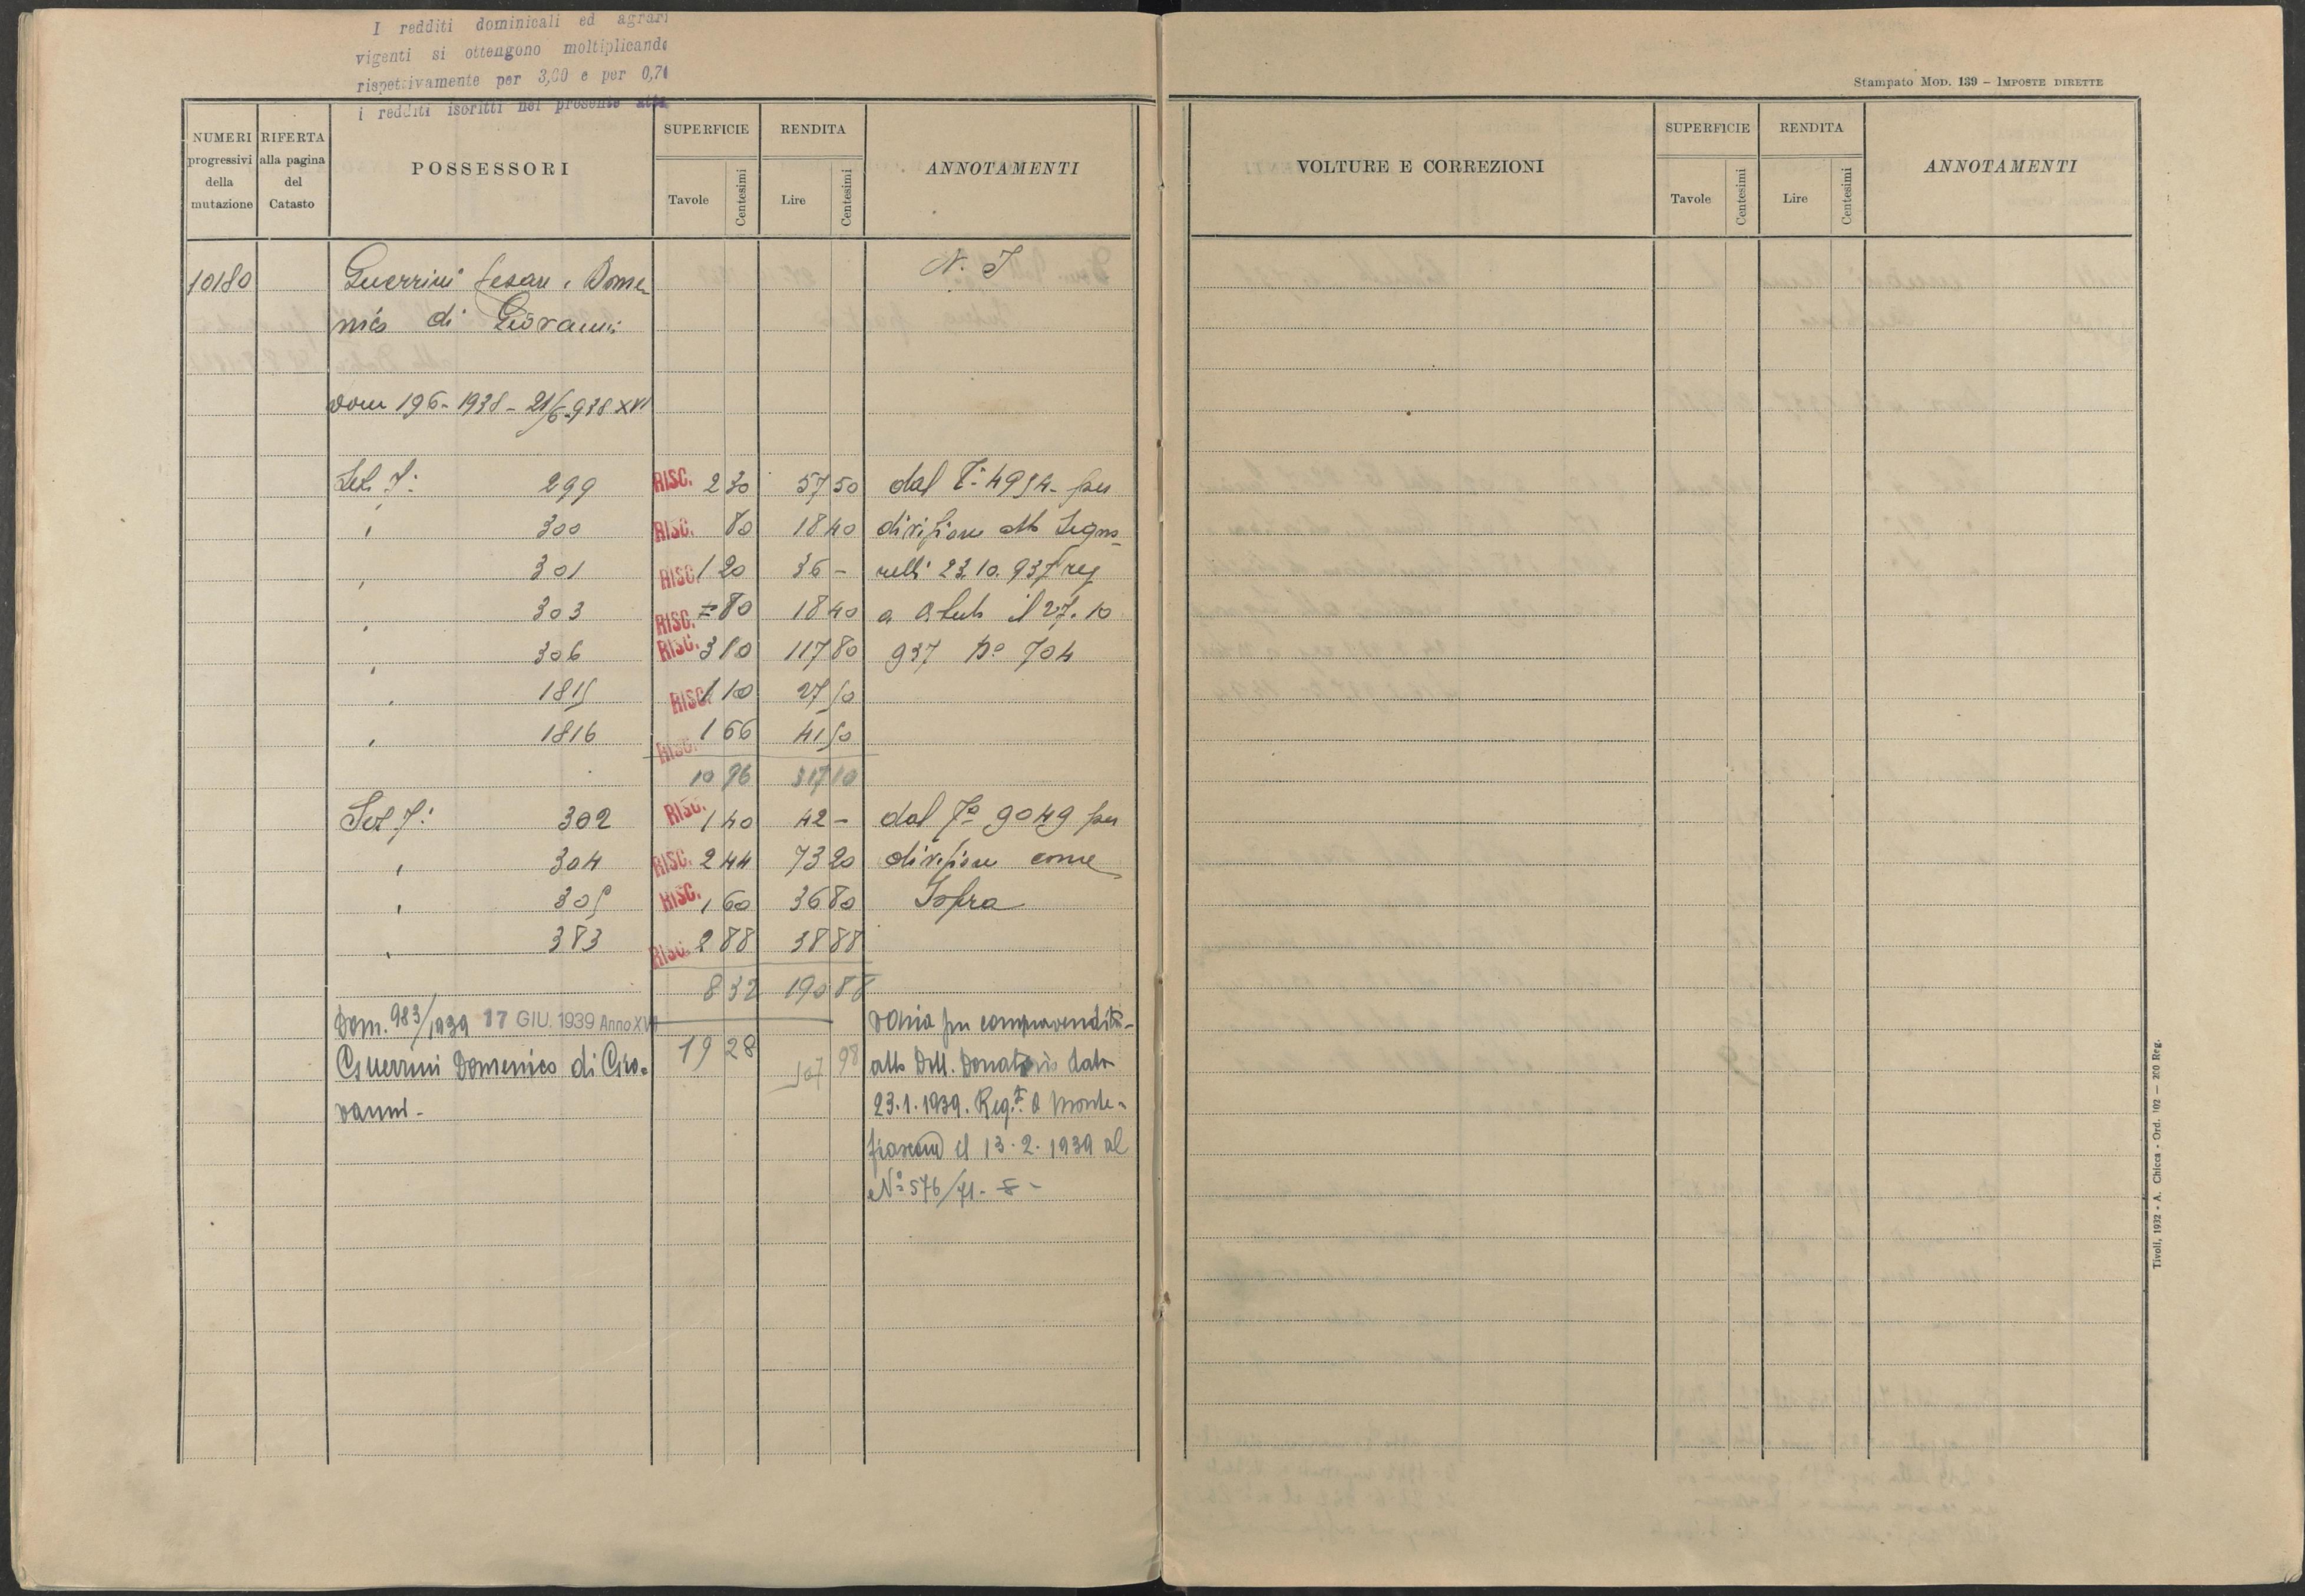 I redditi dominicali ed agrari
vigenti si ottengono moltiplicando
rispettivamente per 3,00 e per 0,70
i redditi iscritti nel presente atto
Stampato Mod. 139 – Imposte dirette
NUMERI progressivi della mutazione
RIFERTA alla pagina del Catasto
POSSESSORI
SUPERFICIE
Tavole
Centesimi
RENDITA
Lire
Centesimi
ANNOTAMENTI
VOLTURE E CORREZIONI
SUPERFICIE
Tavole
Centesimi
RENDITA
Lire
Centesimi
ANNOTAMENTI
10180 Guerrini Cesare e Dome- N. I
nico di Giovanni
Dom 196 - 1938 - 21/6-938 XVI
299 RISC. 2 30 57 50 dal 4954 per
" 300 RISC. 80 18 40 divisione atto
" 301 RISC. 1 20 36 - 23.10.937 reg
" 303 RISC. = 80 18 40 a il 27.10
" 306 RISC. 3 80 117 80 937 No 704
" 1815 RISC. 1 10 27 50
" 1816 RISC. 1 66 41 50
10 96 317 10
302 RISC. 1 40 42 - dal 9049 per
" 304 RISC. 2 44 73 20 divisione come
" 305 RISC. 1 60 36 80 Sopra
" 383 RISC. 2 88 38 88
8 32 190 88
Dom. 983/1939 17 GIU. 1939 Anno XVII Varia per compravendita-
Guerrini Domenico di Gio- 19 28 507 98 atto Dott. Donatoris dato
vanni - 23.1.1939. Reg.to a Monte-
fiascone il 13.2.1939 al
No 576/71.
Tivoli, 1932 - A. Chicca - Ord. 102 — 200 Reg.